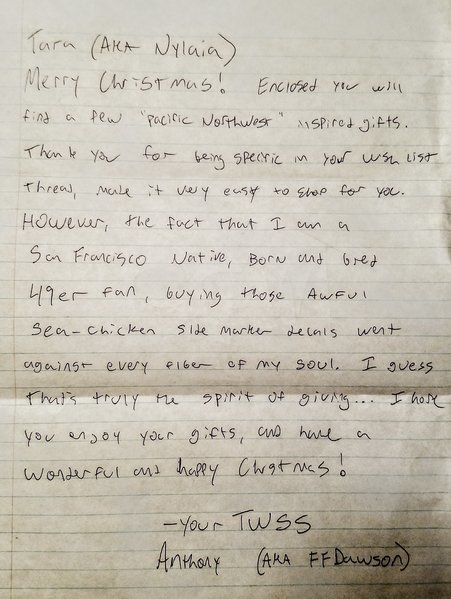 Tara (AKA Nylaia)
Merry Christmas! Enclosed you will
find a few "Pacific Northwest" inspired gifts.
Thank you for being specific in your wish list
thread, make it very easy to shop for you.
However, the fact that I am a
San Francisco Native, Born and bred
49er fan, buying those Awful
Sea-chicken side marker decals went
against every fiber of my soul. I guess
that's truly the spirit of giving... I hope
you enjoy your gifts, and have a
wonderful and happy Christmas!
-Your TWSS
Anthony (AKA FFDawson)